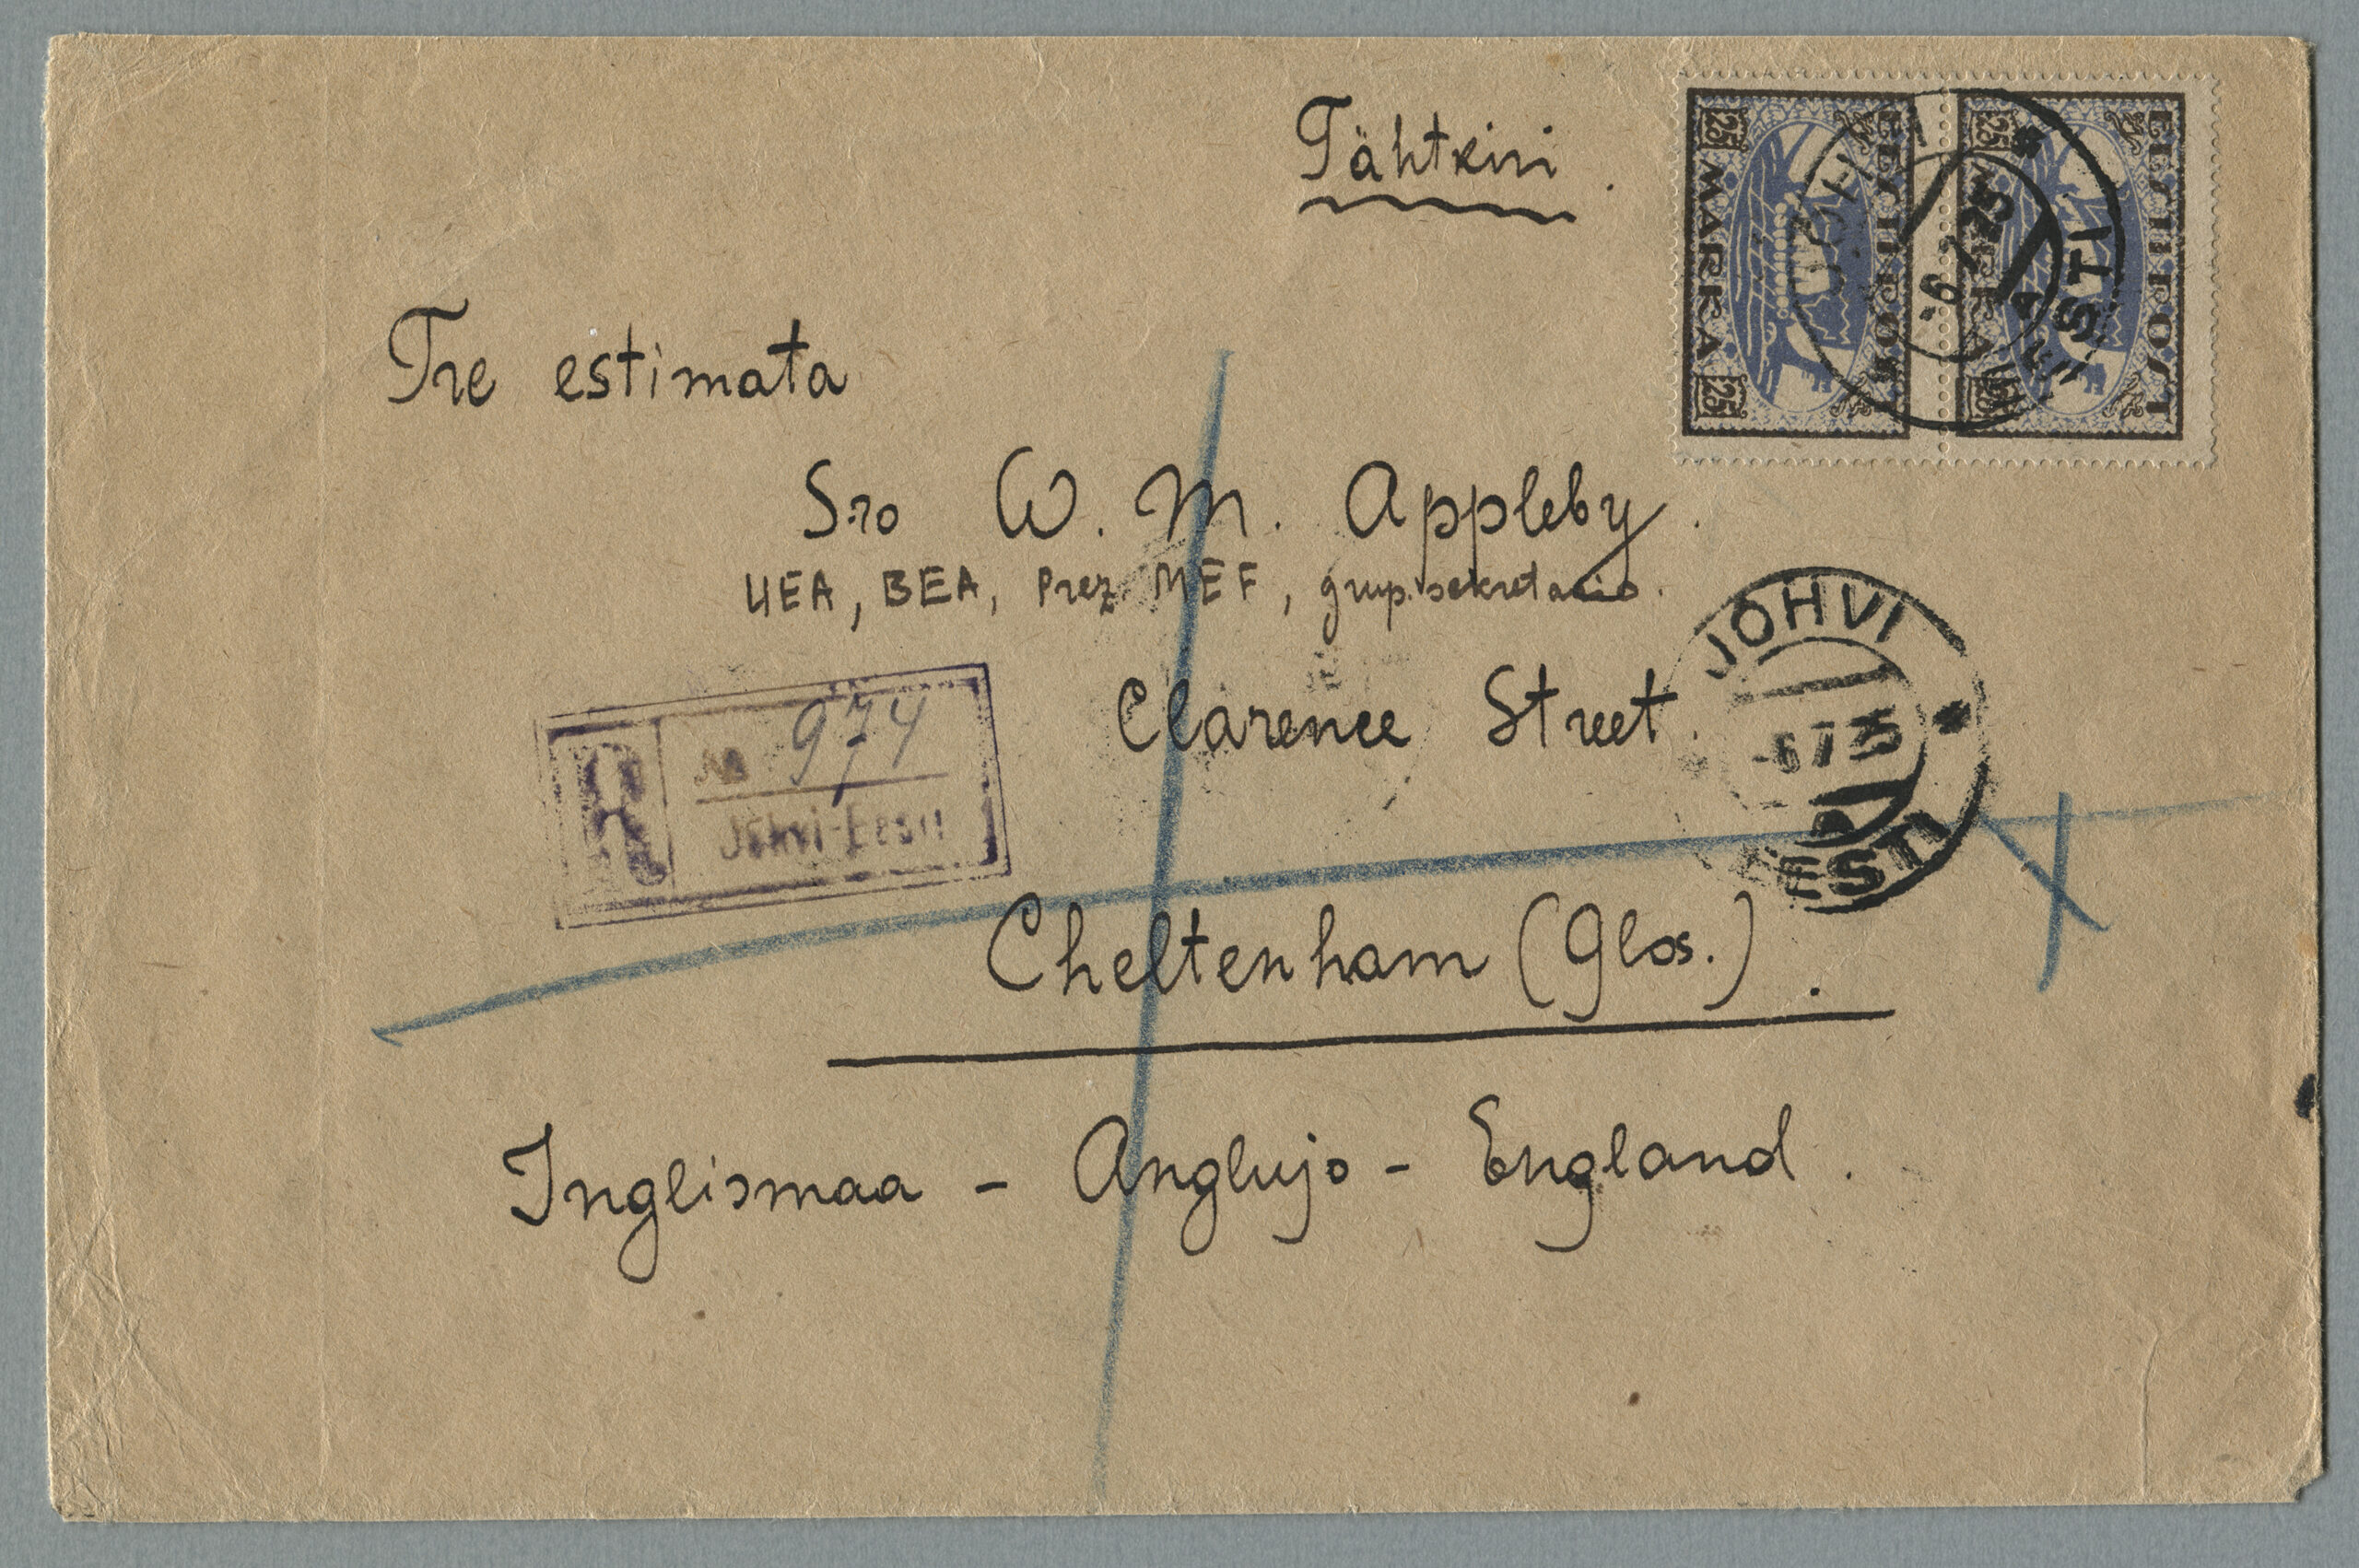 Tähtkiri.
EESTI POST
25 MARKA 25
EESTI POST
25 MARKA 25
JÕHVI
EESTI
-6 7 25
A
Tre estimata
Sro W. M. Appleby.
UEA, BEA, Prez MEF, grup. sekretario.
R
№ 974
Jõhvi-Eesti
Clarence Street.
JÕHVI
-6 7 25
EESTI
Cheltenham (Glos.).
Inglismaa - Anglujo - England.